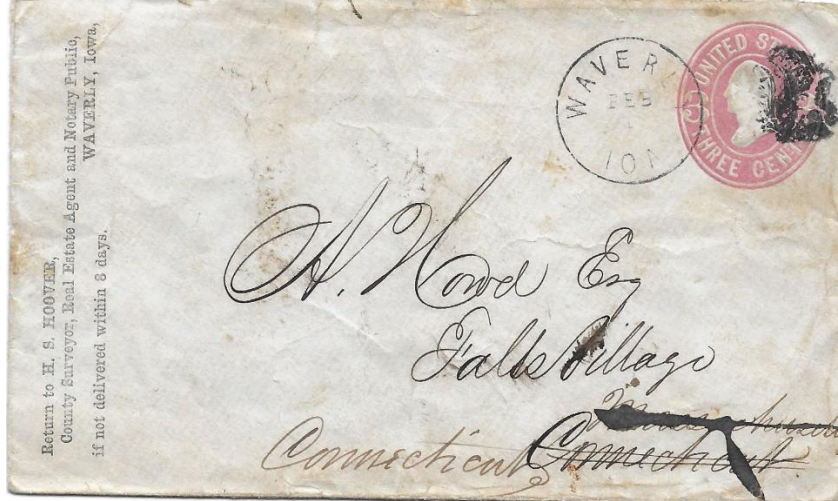 Return to H. S. HOOVER,
County Surveyor, Real Estate Agent and Notary Public,
WAVERLY, Iowa,
if not delivered within 8 days.
WAVER
FEB
IO
UNITED ST
THREE CEN
A. Howd Esq
Falls Village
Connecticut
Connecticut